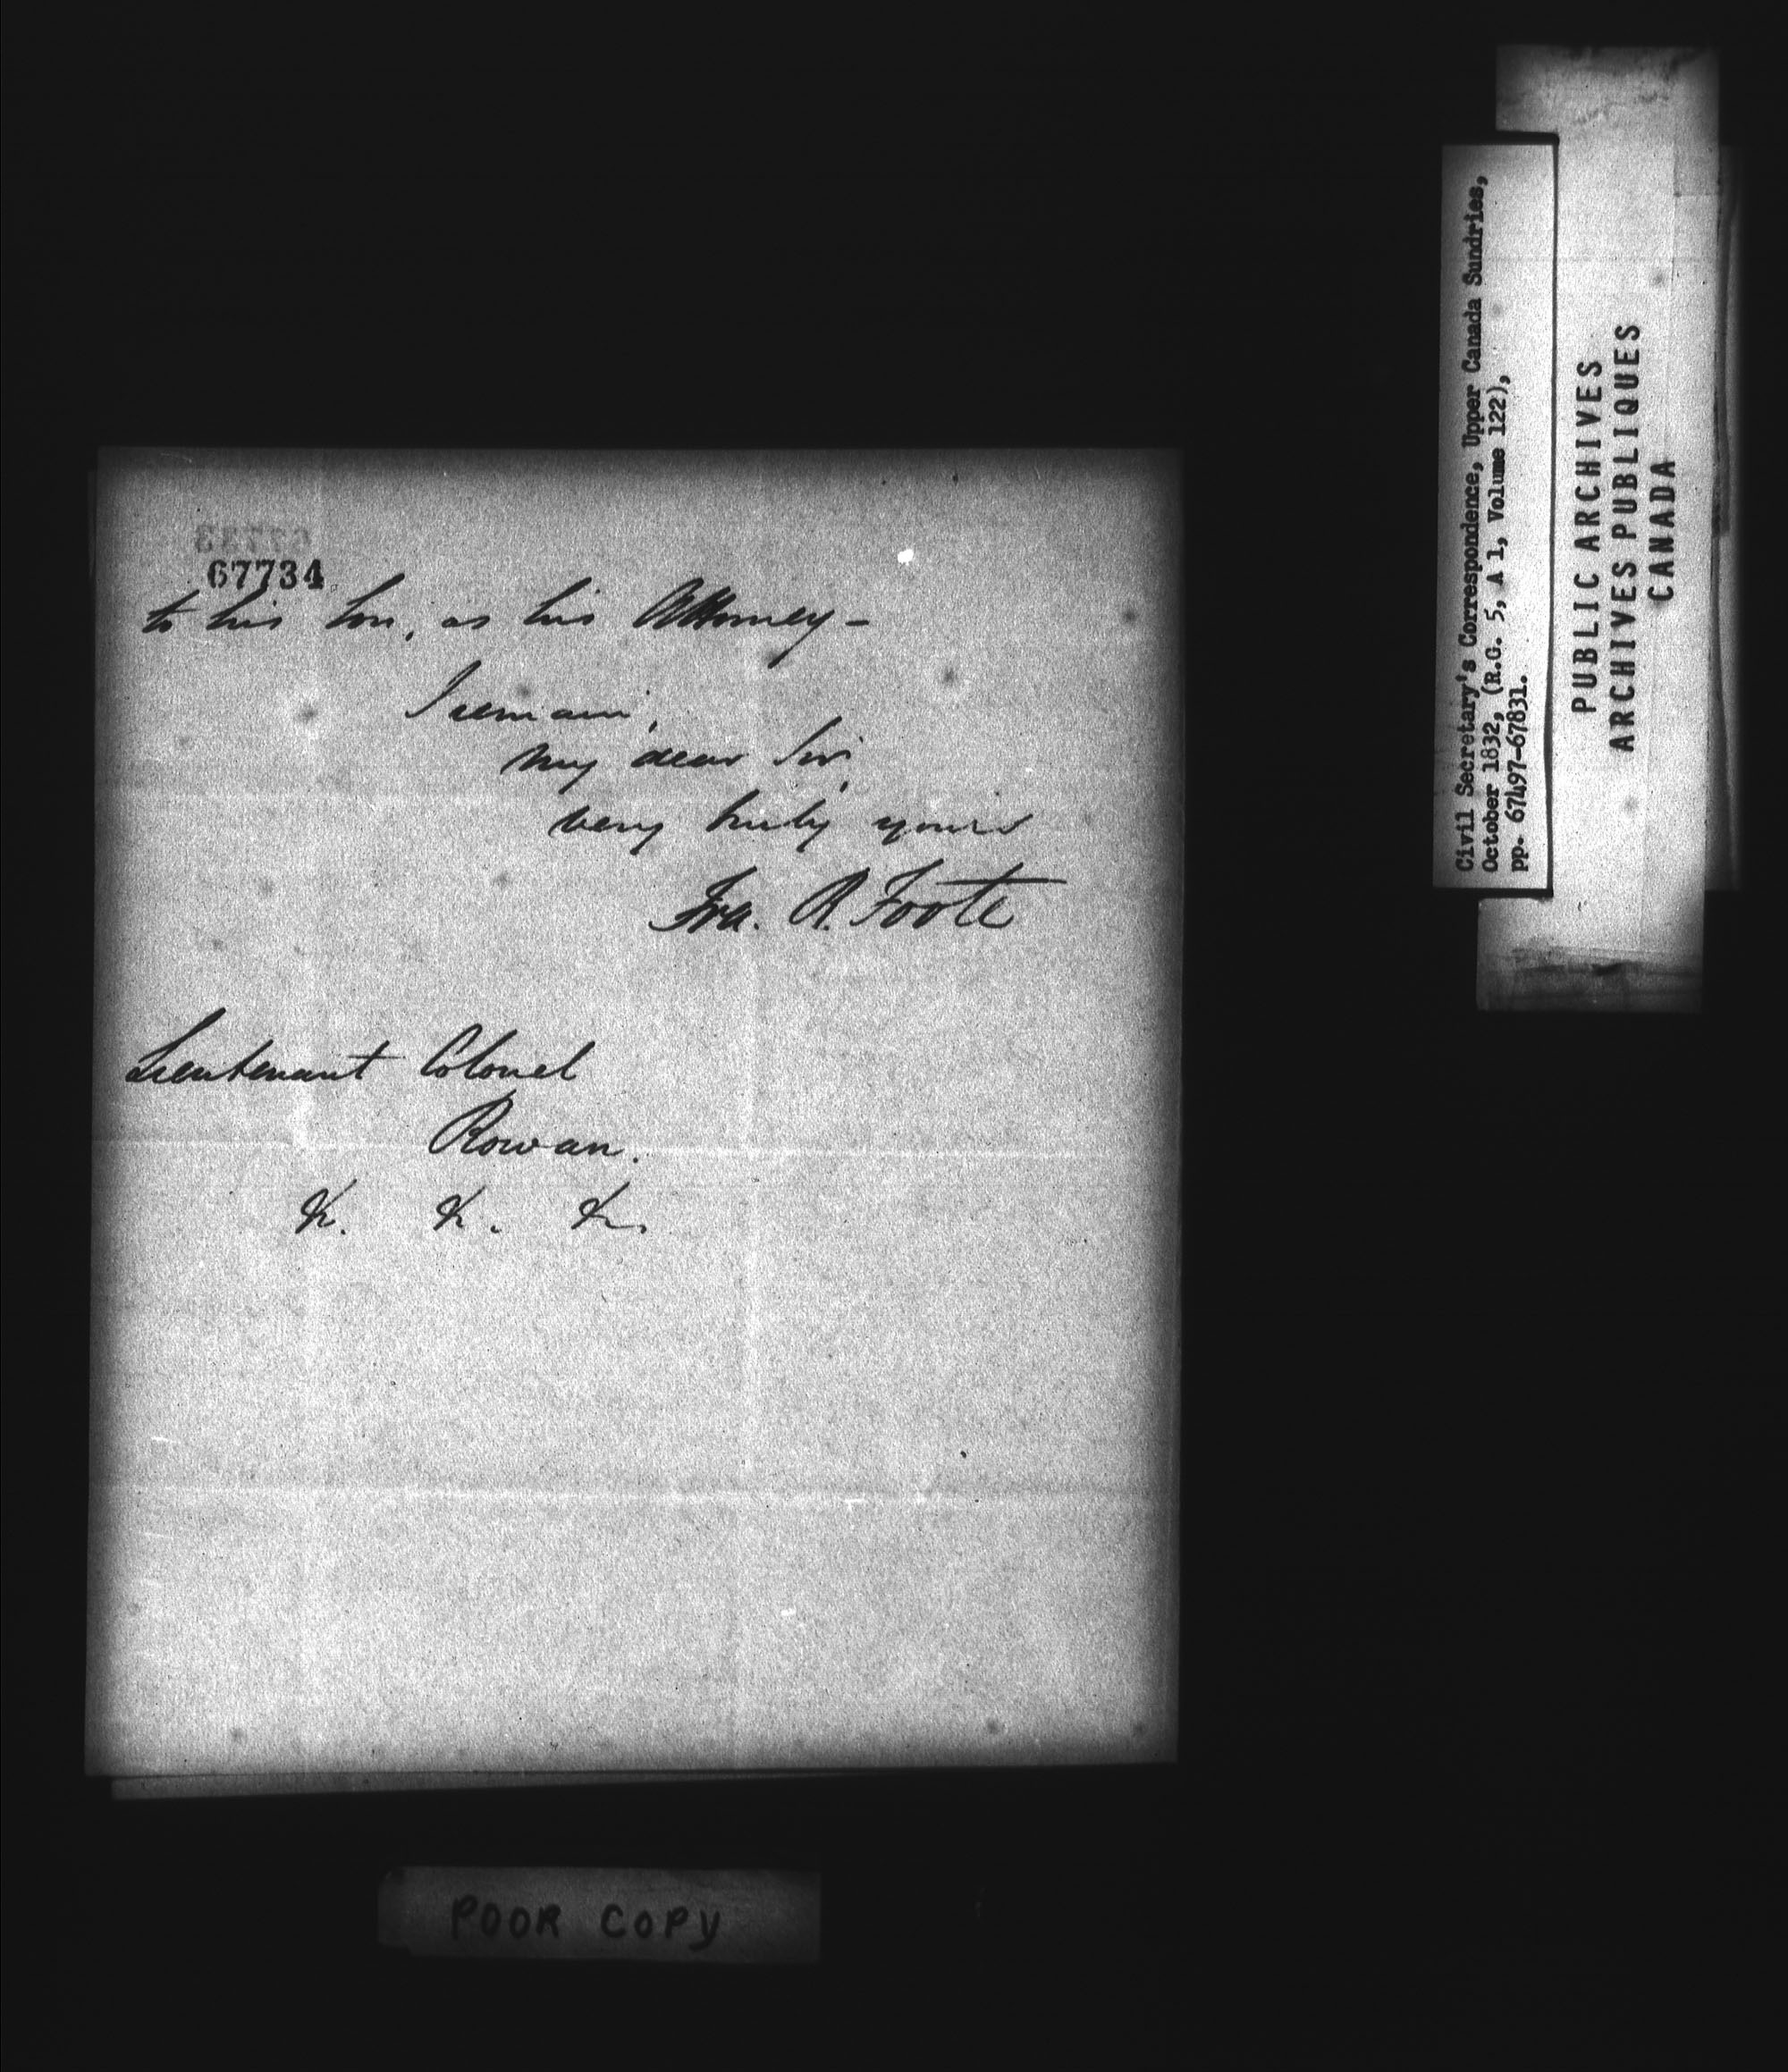 67733
67734
to his Son, as his Attorney –
I remain,
my dear Sir,
very truly yours
Fra. R. Foote
Lieutenant Colonel
Rowan.
&c. &c. &c.
Civil Secretary's Correspondence, Upper Canada Sundries,
October 1832, (R.G. 5, A 1, Volume 122),
pp. 67497-67831.
PUBLIC ARCHIVES
ARCHIVES PUBLIQUES
CANADA
POOR COPY